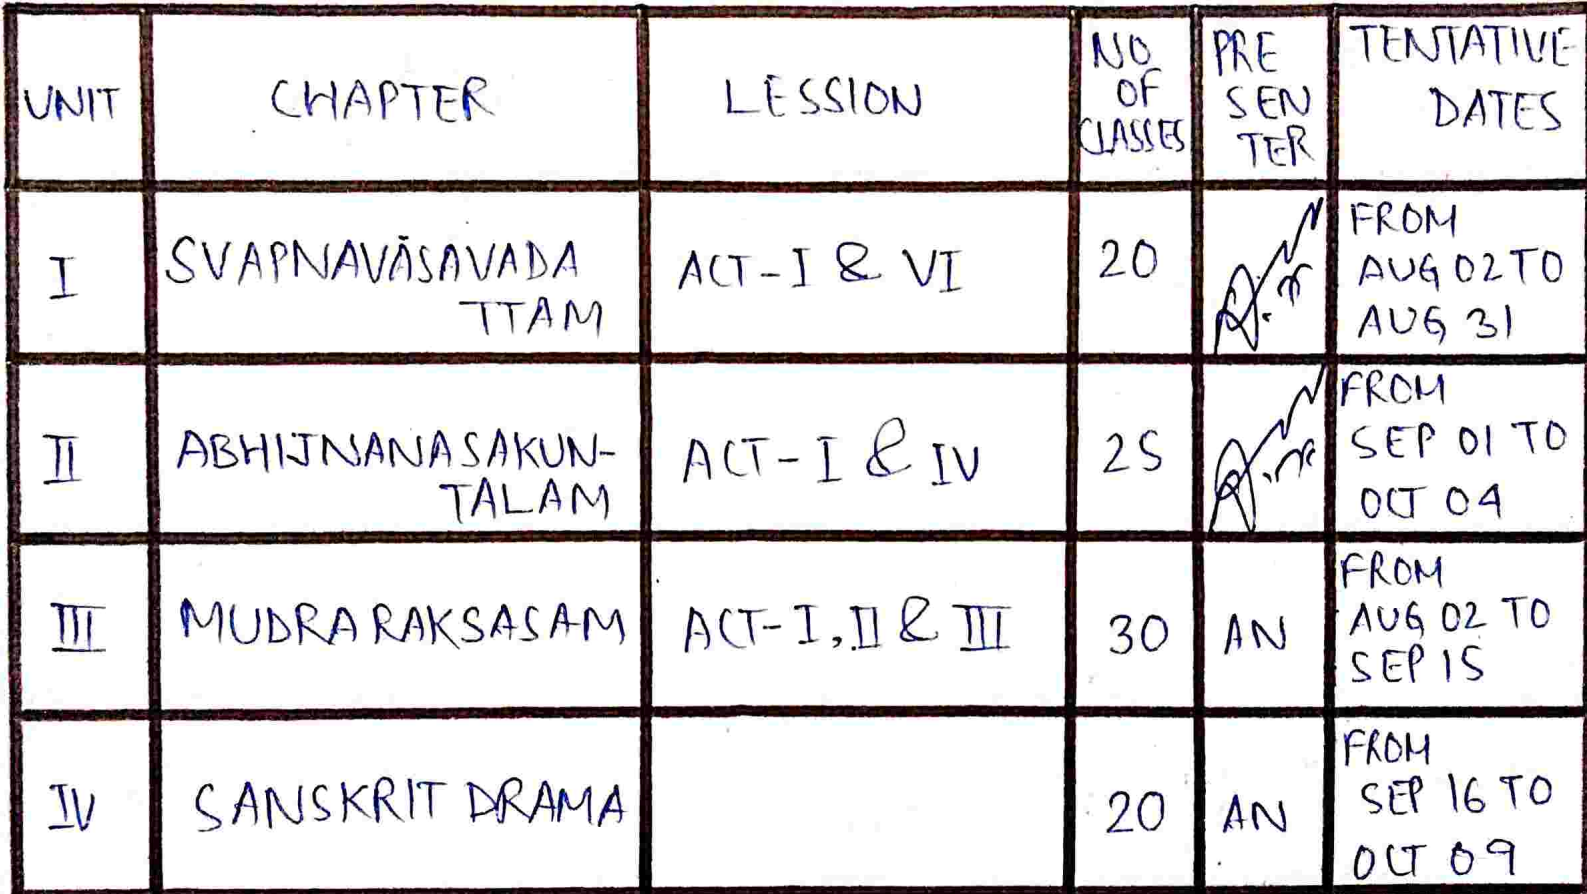 UNIT CHAPTER LESSION NO OF CLASSES PRE SEN TER TENTATIVE DATES
I SVAPNAVĀSAVADA TTAM ACT-I & VI 20 FROM AUG 02 TO AUG 31
II ABHIJNANASAKUN- TALAM ACT-I & IV 25 FROM SEP 01 TO OCT 04
III MUDRARAKSASAM ACT-I, II & III 30 AN FROM AUG 02 TO SEP 15
IV SANSKRIT DRAMA 20 AN FROM SEP 16 TO OCT 09